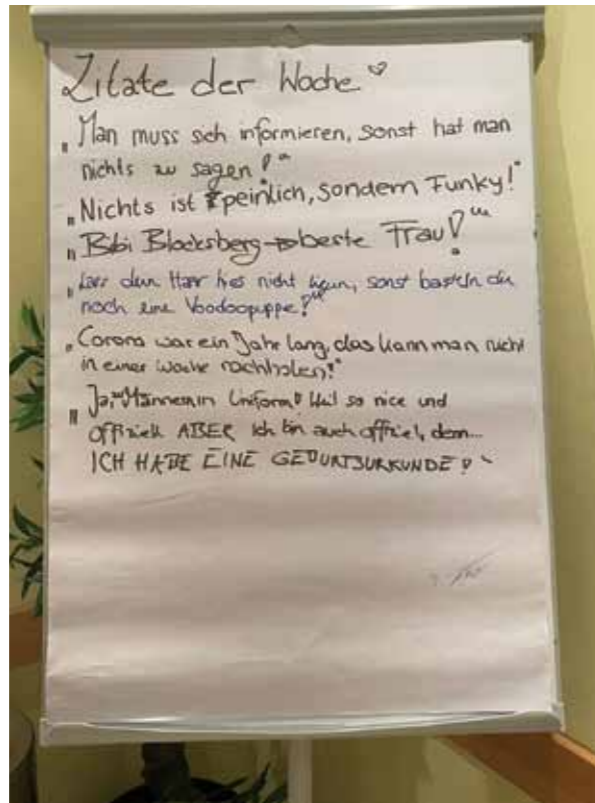 Zitate der Woche ♡
„Man muss sich informieren, sonst hat man
nichts zu sagen!“
„Nichts ist peinlich, sondern Funky!“
„Bibi Blocksberg → beste Frau!“
„Lass dein Haar hier nicht liegen, sonst basteln die
noch eine Voodoopuppe!“
„Corona war ein Jahr lang, das kann man nicht
in einer Woche nachholen!“
„Ja, Männer in Uniform! Weil so nice und
offiziell ABER ich bin auch offiziell, denn...
ICH HABE EINE GEBURTSURKUNDE!“